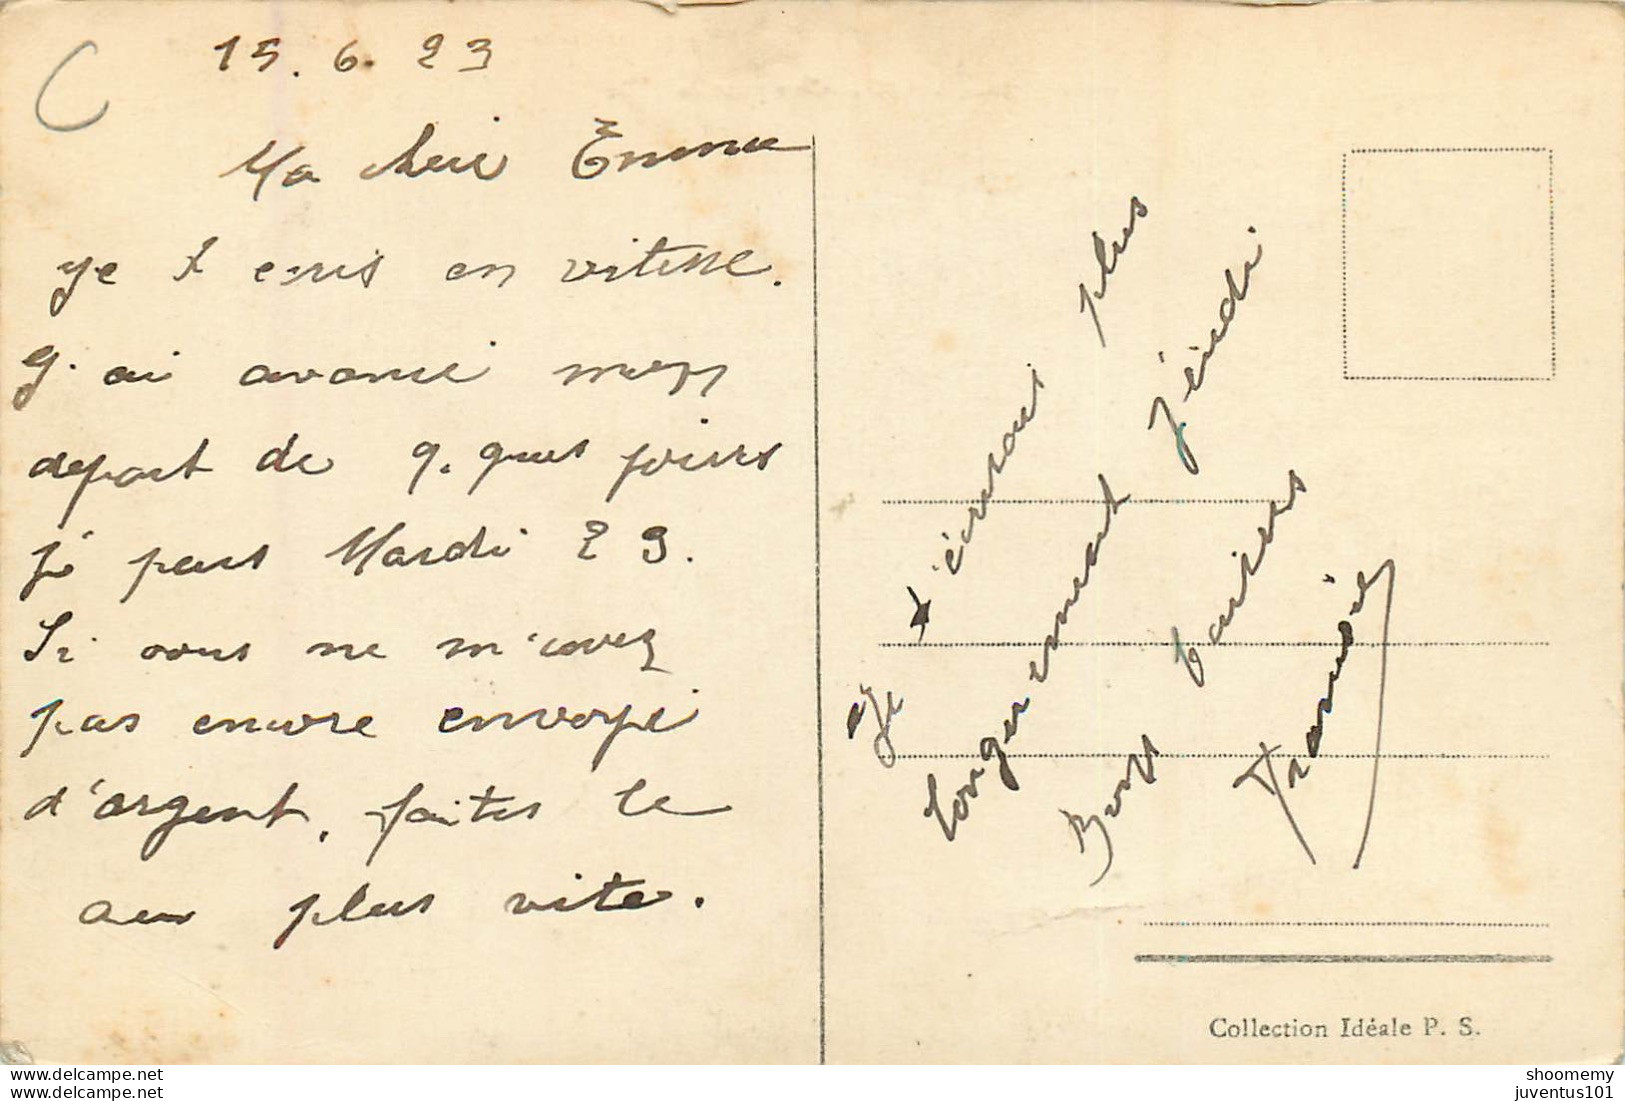 15.6.23
Ma cherie Emma
je t ecris en vitesse.
J.ai avancé mon
depart de q.ques jours
je pars Mardi 29.
Si vous ne m'avez
pas encore envoyé
d'argent, faites le
au plus vite.
Je t'écrirai plus
longuement jeudi
Bons baisers
Francis
Collection Idéale P. S.
www.delcampe.net
shoomemy
juventus101